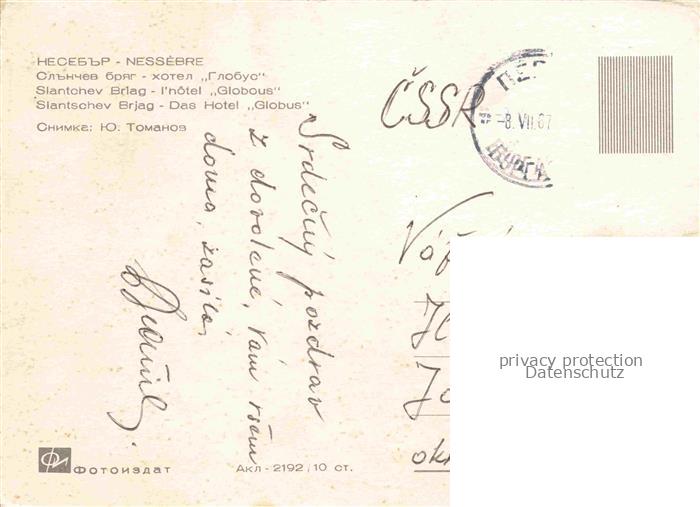 НЕСЕБЪР - NESSÈBRE
Слънчев бряг - хотел „Глобус“
Slantchev Briag - l'hôtel „Globous“
Slantschev Brjag - Das Hotel „Globus“
Снимка: Ю. Томанов
ČSSR
-8. VII. 67
Srdečný pozdrav
z dovolené, Vám všem
doma, zasílá,
privacy protection
Datenschutz
Фотоиздат
Акл - 2192 / 10 ст.